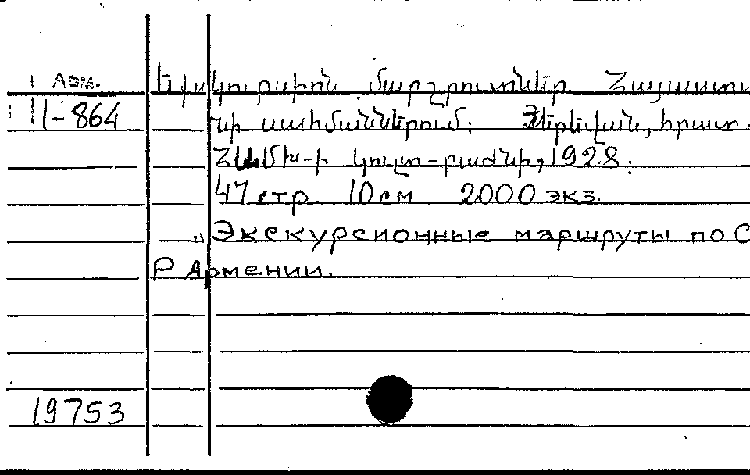 Арм.
Էքսկուրսիոն մարշրուտներ Հայաստա
II-864
նի սահմաններում: Յերեվան, հրատ.
ՀԱՄԽ-ի կուլտ-բաժնի, 1928.
47 стр. 10 см 2000 экз.
„Экскурсионные маршруты по С
Р Армении.
19753